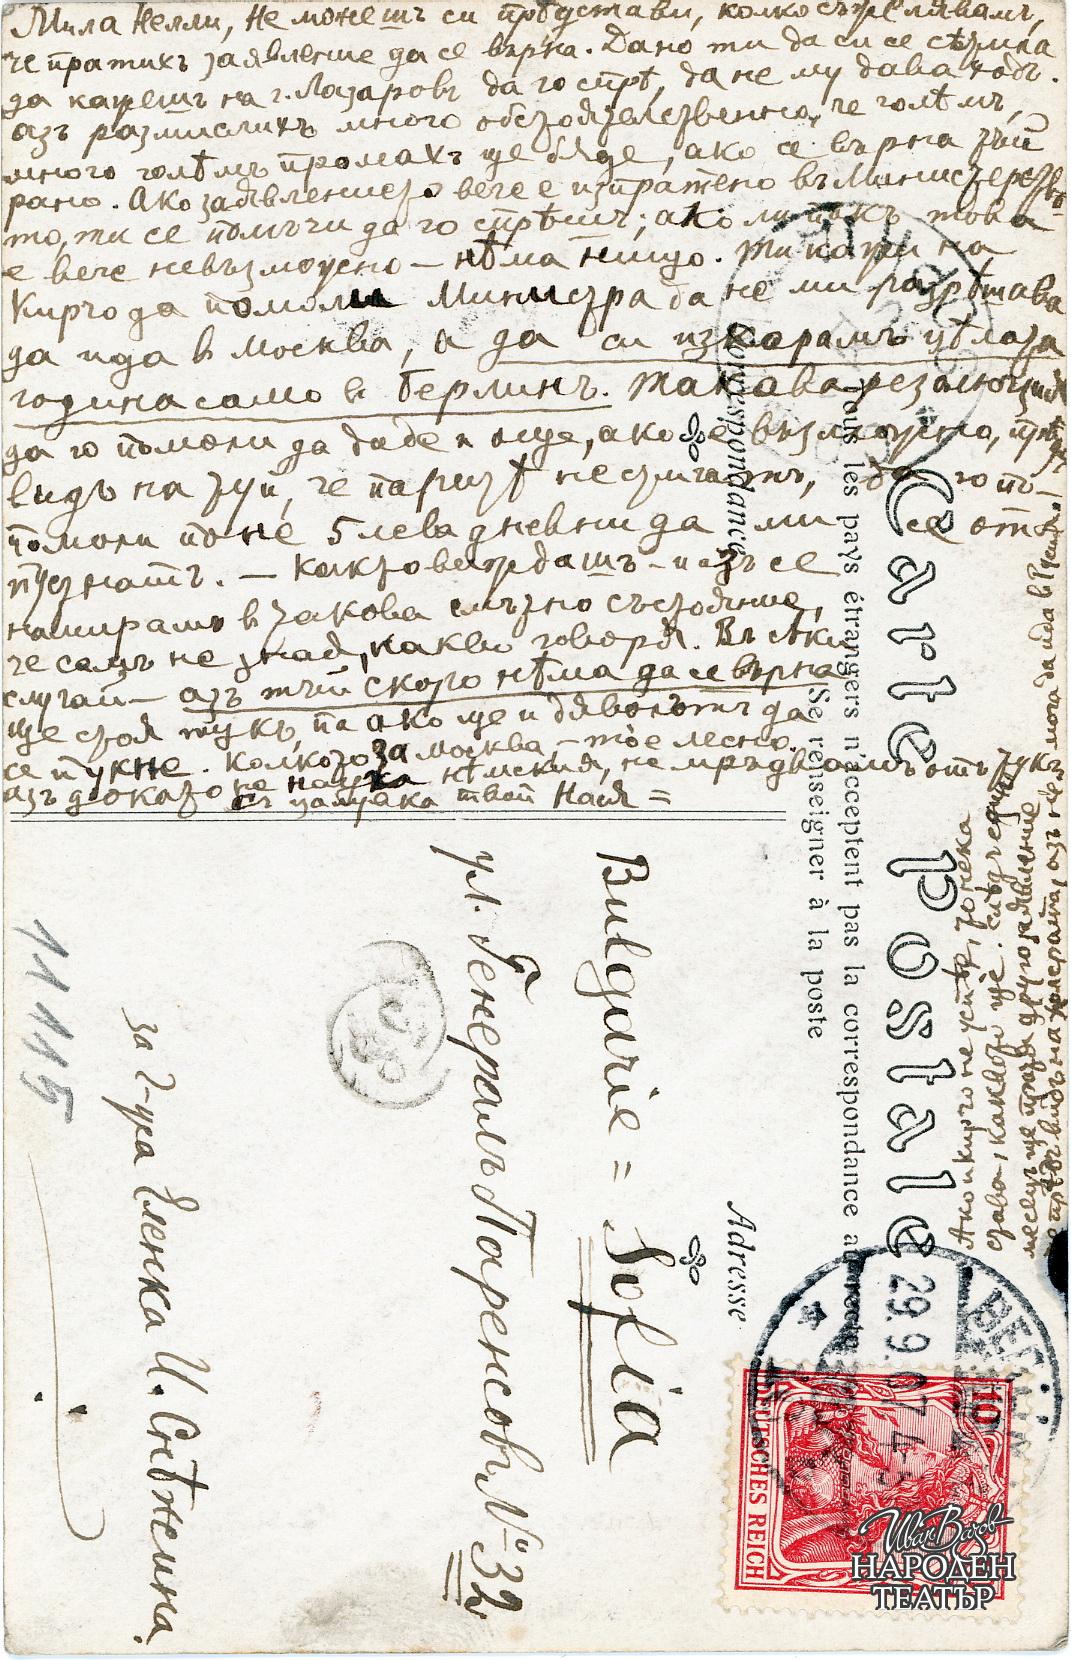 Мила Нелли, Не можешъ си прѣдстави, колко съжелявамъ,
че пратихъ заявление да се върна. Дано ти да си се сѣтила
да кажешъ на г. Лазаровъ да го спрѣ, да не му дава ходъ.
азъ размислихъ много обстоятелствено, че голѣмъ,
много голѣмъ промахъ ще бѫде, ако се върна тъй
рано. Ако заявлението вече е изпратено въ Министерство-
то, ти се помъчи да го спрѣшъ; ако ли пъкъ това
е вече невъзможно — нѣма нищо. Ти кажи на
Кирчо да помоли Министра да не ми разрѣшава
да ида в Москва, а да си изкарамъ цѣлата
година само в Берлинъ. Такава резолюция
да го помоли да даде и още, ако е възможно, прѣдъ
видъ на туй, че паритѣ не стигатъ, да го по-
помоли поне 5 лева дневни да ми се отъ-
пустнатъ. — Както виждашъ — азъ се
намирамъ в такова смѣтно състояние,
че самъ не зная, какво говоря. Въ сѣки
случай — азъ тъй скоро нѣма да се върна
ще стоя тукъ, па ако ще и дяволътъ да
се пукне. Колкото за Москва, — то е лесно.
азъ докато не науча нѣмския, не мръдвамъ отъ тукъ
съ цалувка твой Нася =
Ако и Кирчо не успѣе, то нека
става, каквото ще. слѣдъ единъ
месецъ ще пратя друго заявление
прѣдъ видъ на холерата, азъ не мога да ида в Русия!
Carte postale
Tous les pays étrangers n'acceptent pas la correspondance au recto
Se renseigner à la poste
Correspondance
Adresse
Bulgarie = Sofia
ул. Генералъ Паренсовъ № 32
за г-жа Еленка И. Снѣжина.
11115
BERLIN
29.9.07.4-5
10
DEUTSCHES REICH
Иван Вазов
НАРОДЕН
ТЕАТЪР